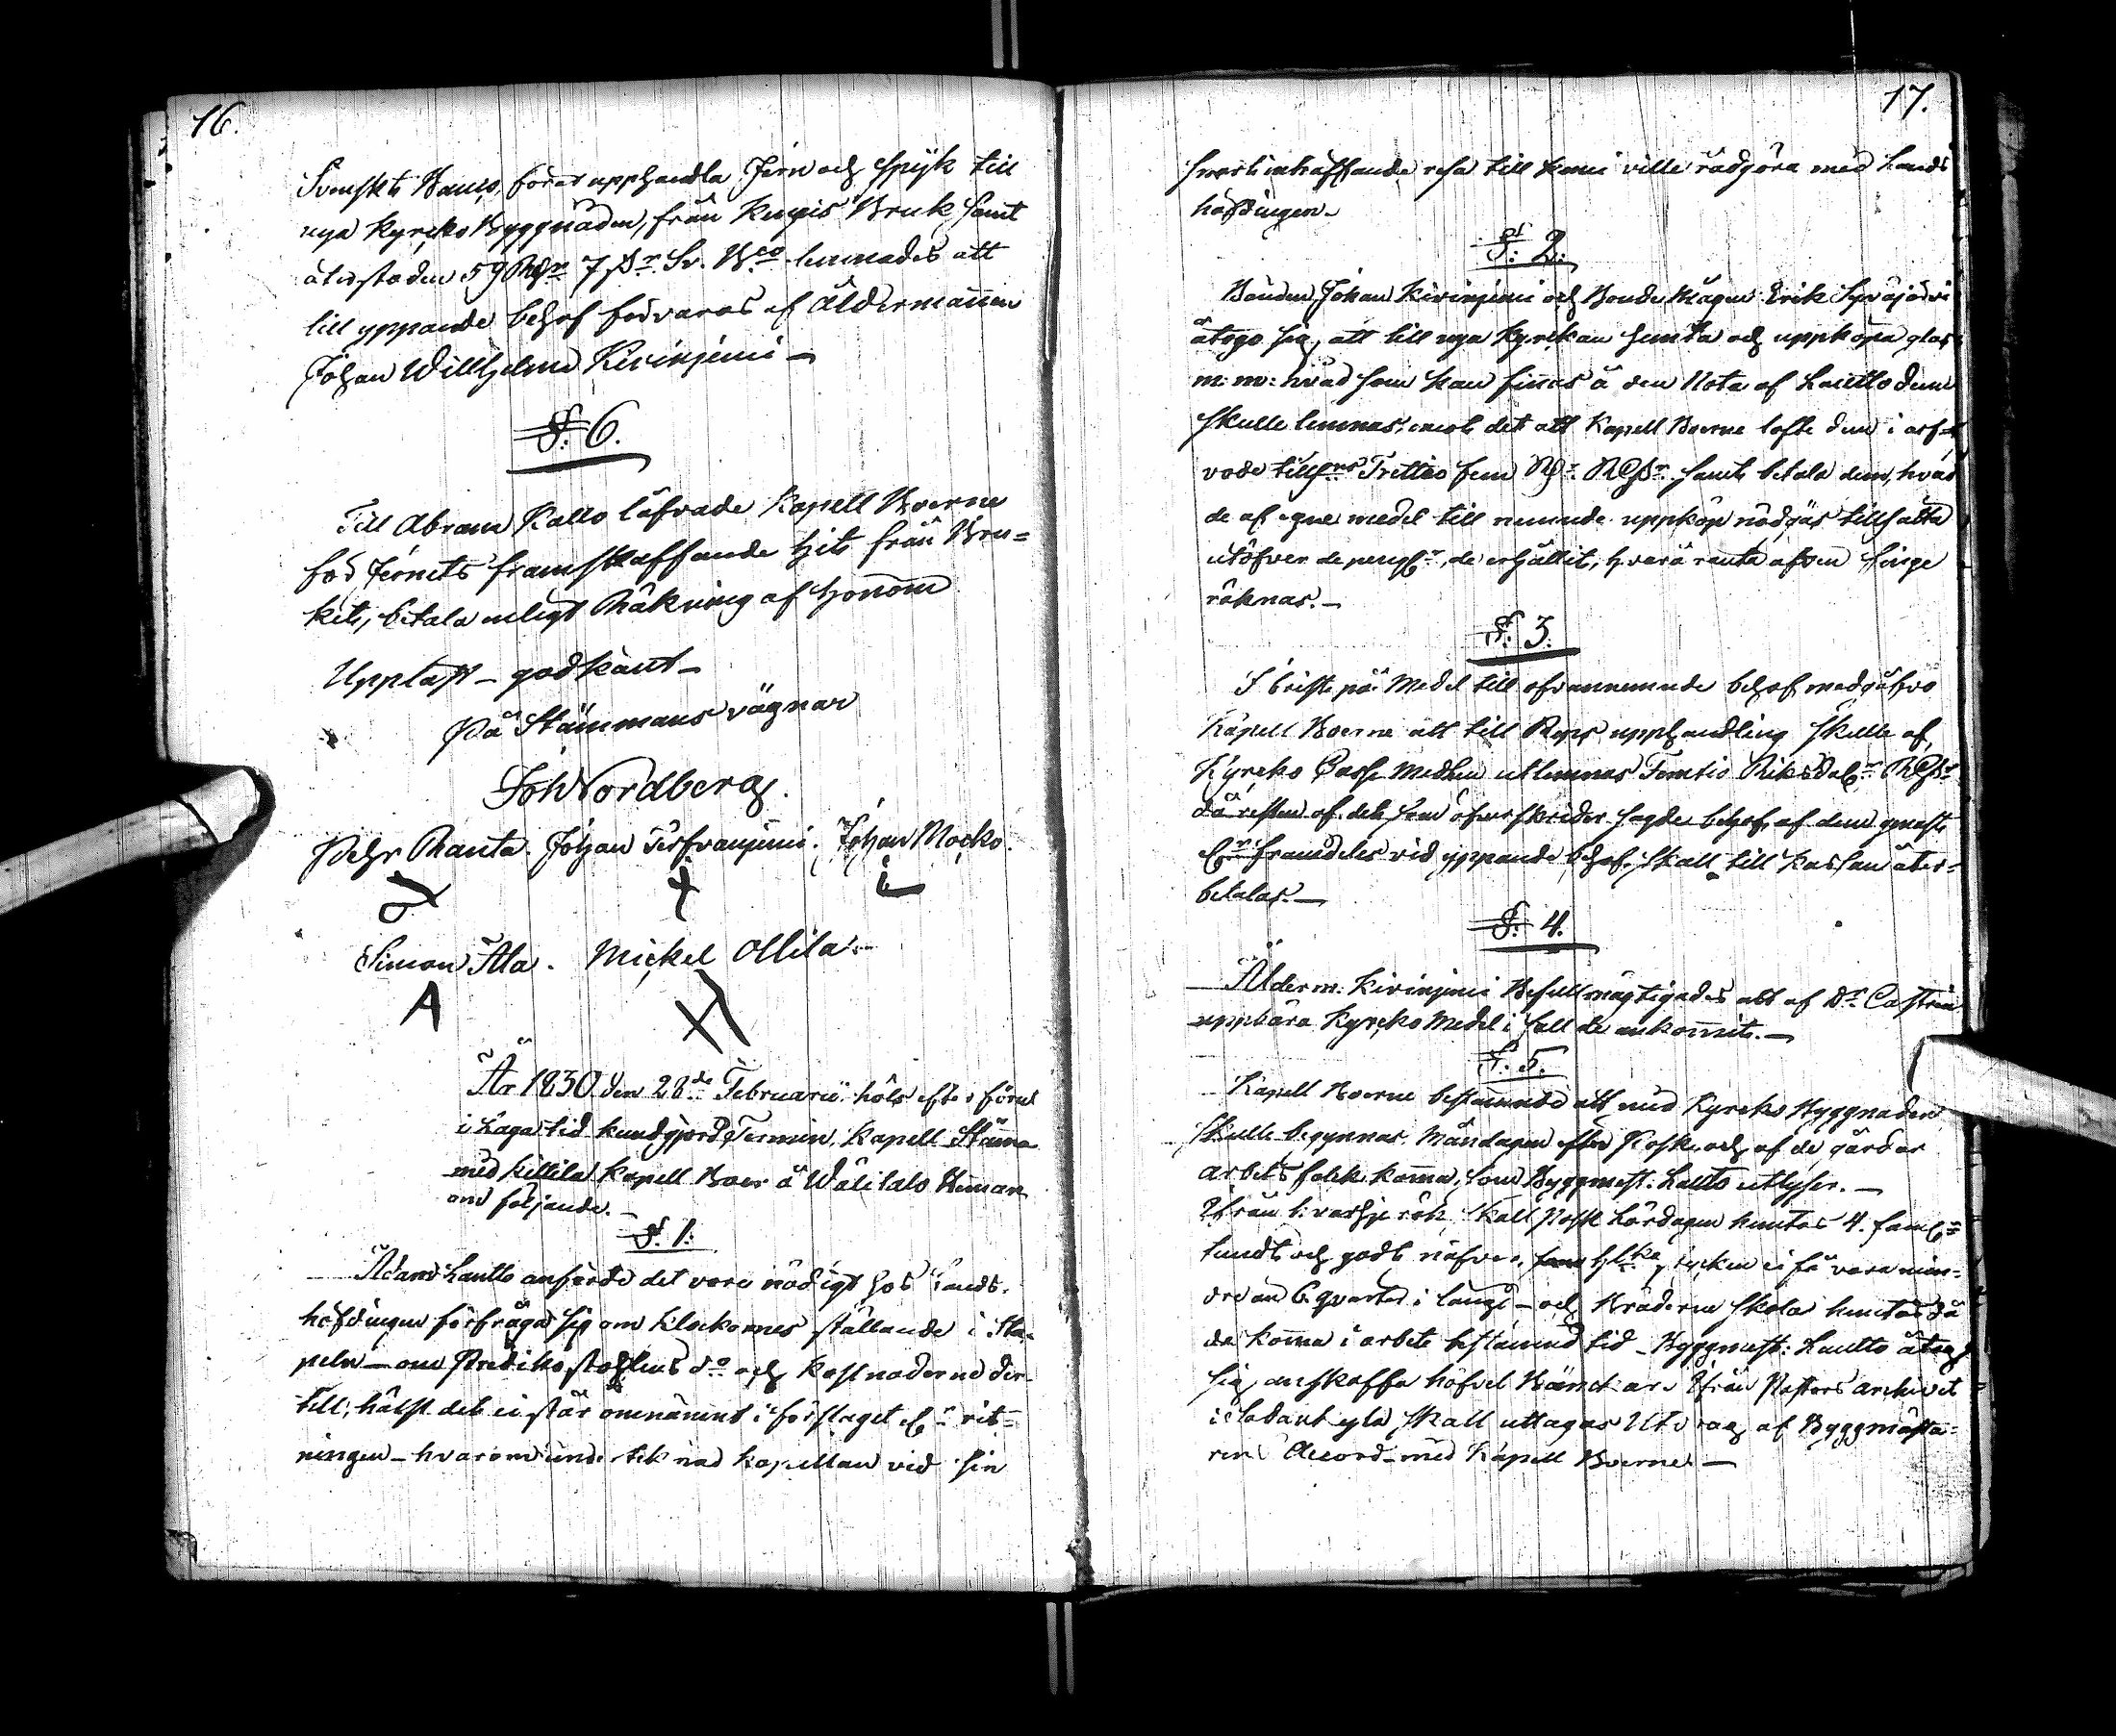 16.
Svenskt Banco, för at upphandla Jern och Spijk till
nya Kyrcko Byggnaden, från Kengis Bruk, samt
återstoden 59 Rdr 7 sr. Sv. Bco lemnades att
till yppande behof förvaras af Åldermannen
Johan Willhelm Kirinjemi —
§: 6.
Till Abram Kallo låfvade Kapell Boerne
för Jernets framskaffande hit från Bru=
ket, betala enligt Räkning af honom
Upplast – godkänt –
På Stämmans vägnar
Joh Nordberg.
Pehr Ranta. Johan Terfvanjemi. Johan Mocko.
Simon Ala. Mickel Ollila.
A
År 1830 den 28de Februarii höls efter förut
i Laga tid kundgjord Termin, Kapell Stämma
med Kittilä Kapell Boer å Wälitalo Hemman
om följande. –
§. 1.
Adam Lautto anförde det vore nödigt hos Lands-
höfdingen förfråga sig om Klockornes ställande i Sta-
peln — om Predikostohlens do och kostnaderne der-
till, hälst det ei står omnämnt i förslaget elr rit-
ningen – hvarom undertecknad Kapellan vid sin
17.
snart inträffande resa till Kemi ville rådgöra med Lands
höfdingen –
§: 2.
Bonden Johan Kirinjemi och Bonde Mågen Erik
åtogo sig, att till nya Kyrckan hemta och uppköpa glas
m: m: hvad som kan finnas å den Nota af Lautto dem
skulle lemnas, emot det att Kapell Boerne lofte dem i arf-
vode tillhns Trettio fem Rdr RGs samt betala dem, hvad
de af egne medel till nemnde uppköp nödgas tillsätta
utöfver de pengr, de erhållit, hvarå ranta afven finge
räknas. —
§. 3.
I brist på Medel till ofvannemnde behof medgåfvo
Kapell Boerne att till upphandling skulle af
Kyrcko Cassa Medlen utlemnas Femtio Riksdalr RGs
då resten af det som öfverskrider sagde behof, af dem
elr framdeles vid yppande behof, skall till kassan åter-
betalas. —
§. 4.
Alderm: Kirinjemi Befullmägtigades att af Dr Castrén
uppbära Kyrcko Medel i fall de ankommit. —
§. 5.
Kapell Boerne bestämde att med Kyrcko Byggnaden
skulle begynnas Måndagen efter Påsk, och af de gårdar
arbetsfolk komma, som Byggmest: Lautto utlyser. —
Ifrån hvarje rök skall Påsk Lördagen hemtas 4. famlr
tundt och godt näfver, hlka stycken ei få vara min-
dre än 6. quarter i längd — och Bräderne skola hemtas då
de komma i arbete bestämd tid – Byggmest: Lautto åtog
sig anskaffa höfvel Bänckar. Ifrån Pastors archivet
i Sodankylä skall uttagas Utdrag af Byggmästa-
rens Accord med Kapell Boerne. —